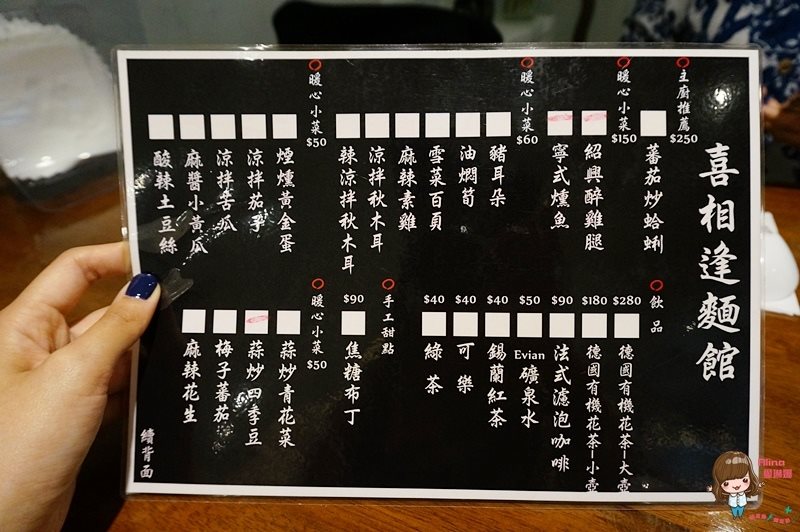 喜相逢麵館
主廚推薦 $250
蕃茄炒蛤蜊
暖心小菜 $150
紹興醉雞腿
寧式燻魚
暖心小菜 $60
豬耳朵
油燜筍
雪菜百頁
麻辣素雞
涼拌秋木耳
辣涼拌秋木耳
暖心小菜 $50
煙燻黃金蛋
涼拌茄子
涼拌苦瓜
麻醬小黃瓜
酸辣土豆絲
飲品
$280 德國有機花茶-大壺
$180 德國有機花茶-小壺
$90 法式濾泡咖啡
$50 Evian 礦泉水
$40 錫蘭紅茶
$40 可樂
$40 綠茶
手工甜點
$90 焦糖布丁
暖心小菜 $50
蒜炒青花菜
蒜炒四季豆
梅子蕃茄
麻辣花生
續背面
Alina